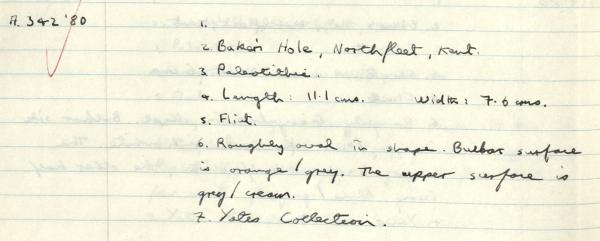 A. 342 '80
1.
2. Baker's Hole, Northfleet, Kent.
3. Paleolithic.
4. Length: 11.1 cms. Width: 7.6 cms.
5. Flint.
6. Roughly oval in shape. Bulbar surface
is orange/grey. The upper surface is
grey/cream.
7. Yates Collection.